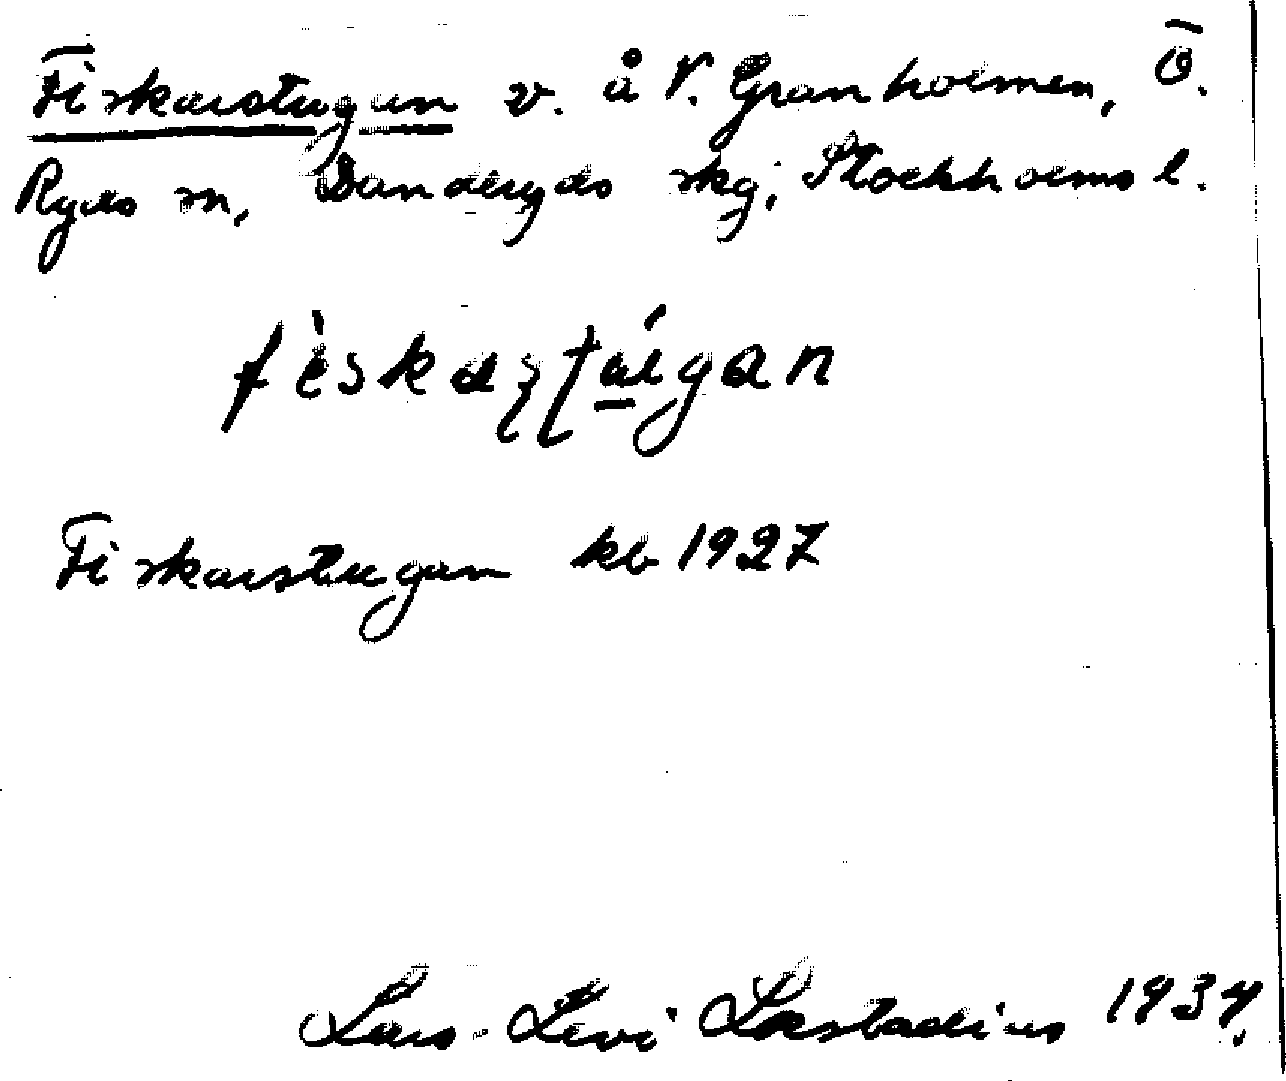 Fiskarstugan v. å V. Granholmen, Ö.
Ryds sn, Danderyds skg, Stockholms l.
Fiskarstugan kb 1927
Lars-Levi Læstadius 1934.